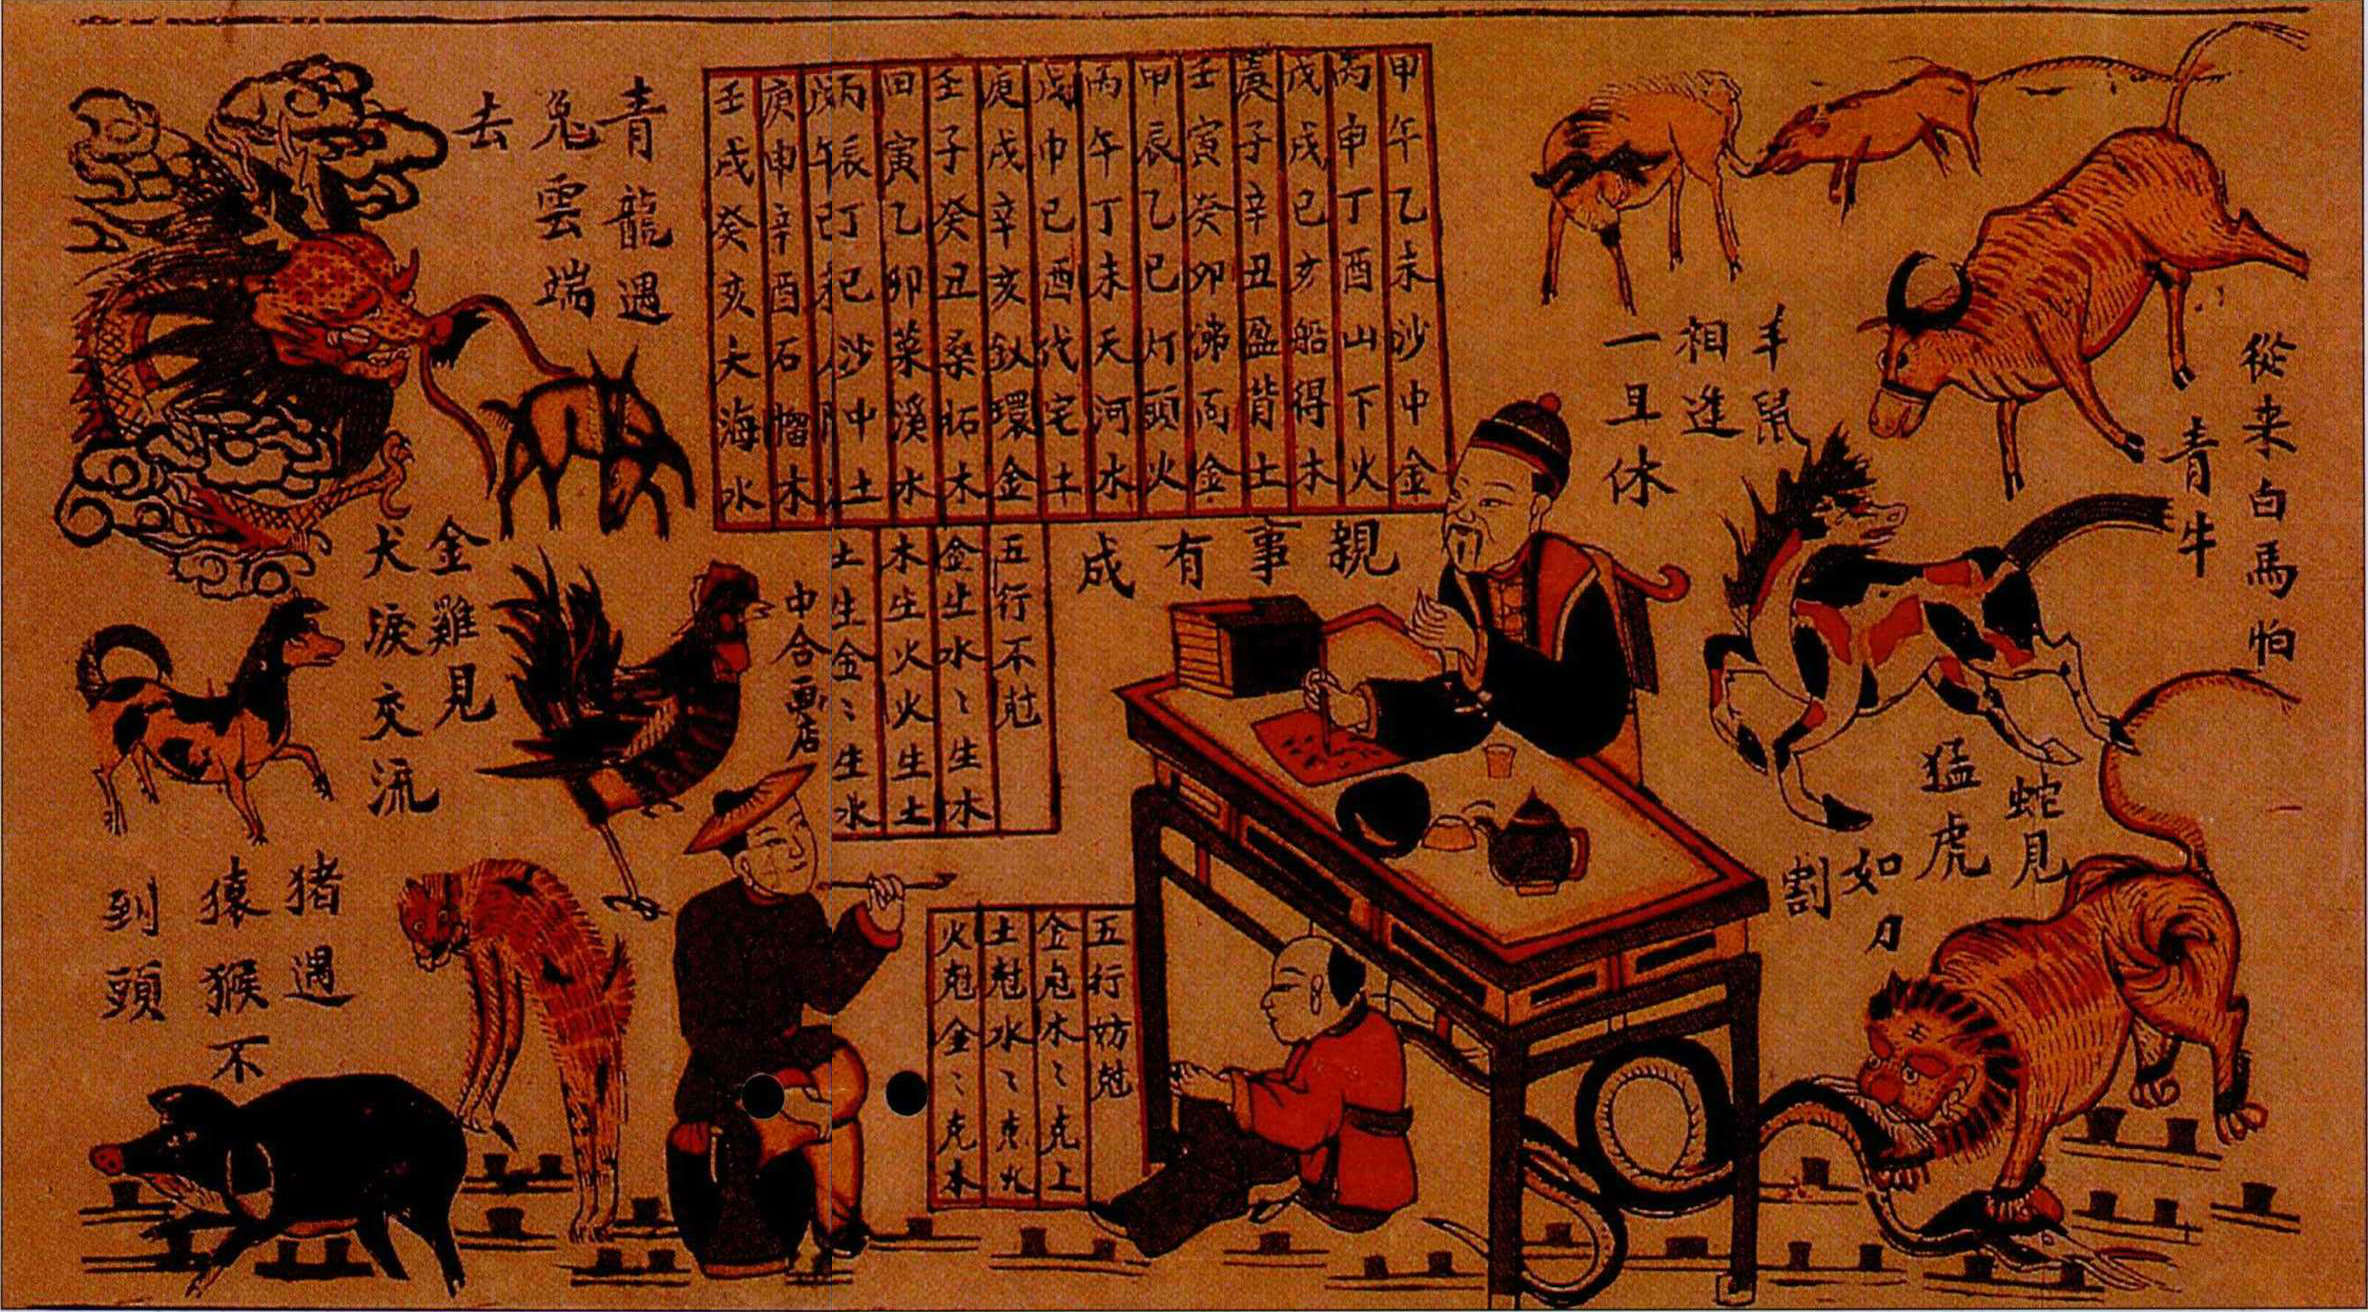 從来白馬怕
青牛
羊鼠
相進
一旦休
蛇見
猛虎
如刀
割
甲午乙未沙中金
丙申丁酉山下火
戊戌已亥船得木
庚子辛丑盈背土
壬寅癸卯沸金
甲辰乙巳灯頭火
丙午丁未天河水
戊申已酉代宅土
庚戌辛亥釵環金
壬子癸丑桑柘木
甲寅乙卯菜溪水
丙辰丁巳沙中土
戊午
庚申辛酉石榴木
壬戌癸亥大海水
親事有成
五行不尅
金生水〻生木
木生火火生土
土生金〻生水
五行妨尅
金尅木〻克土
土尅水〻克火
火尅金〻克木
中合画店
青龍遇
兔雲端
去
金雞見
犬淚交流
猪遇
猿猴不
到頭